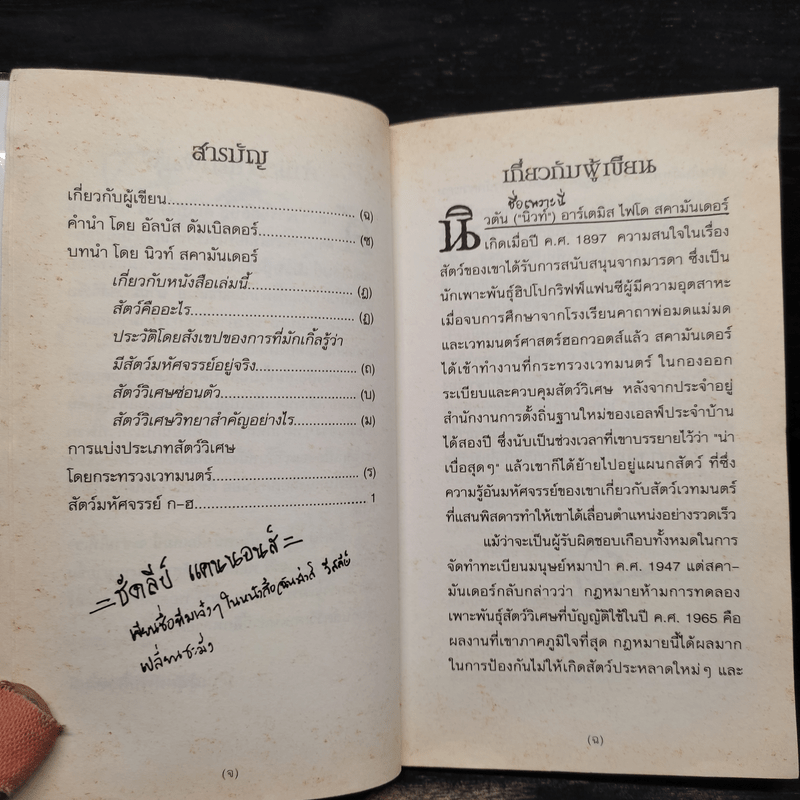 สารบัญ
เกี่ยวกับผู้เขียน.......................................... (ฉ)
คำนำ โดย อัลบัส ดัมเบิลดอร์...................... (ซ)
บทนำ โดย นิวท์ สคามันเดอร์
เกี่ยวกับหนังสือเล่มนี้...................... (ฎ)
สัตว์คืออะไร.................................. (ฏ)
ประวัติโดยสังเขปของการที่มักเกิ้ลรู้ว่า
มีสัตว์มหัศจรรย์อยู่จริง.................... (ถ)
สัตว์วิเศษซ่อนตัว........................... (บ)
สัตว์วิเศษวิทยาสำคัญอย่างไร............. (ม)
การแบ่งประเภทสัตว์วิเศษ
โดยกระทรวงเวทมนตร์............................. (ร)
สัตว์มหัศจรรย์ ก-ฮ.................................. 1
=ชัดลีย์ แคนนอนส์=
เขียนชื่อทีมเจ๋งๆ ในหนังสือ
เปลี่ยนซะมั่ง
(จ)
เกี่ยวกับผู้เขียน
ชื่อเหวาะนี่
นิวตัน ("นิวท์") อาร์เตมิส ไฟโด สคามันเดอร์
เกิดเมื่อปี ค.ศ. 1897 ความสนใจในเรื่อง
สัตว์ของเขาได้รับการสนับสนุนจากมารดา ซึ่งเป็น
นักเพาะพันธุ์ฮิปโปกริฟฟ์แฟนซีผู้มีความอุตสาหะ
เมื่อจบการศึกษาจากโรงเรียนคาถาพ่อมดแม่มด
และเวทมนตร์ศาสตร์ฮอกวอตส์แล้ว สคามันเดอร์
ได้เข้าทำงานที่กระทรวงเวทมนตร์ ในกองออก
ระเบียบและควบคุมสัตว์วิเศษ หลังจากประจำอยู่
สำนักงานการตั้งถิ่นฐานใหม่ของเอลฟ์ประจำบ้าน
ได้สองปี ซึ่งนับเป็นช่วงเวลาที่เขาบรรยายไว้ว่า "น่า
เบื่อสุดๆ" แล้วเขาก็ได้ย้ายไปอยู่แผนกสัตว์ ที่ซึ่ง
ความรู้อันมหัศจรรย์ของเขาเกี่ยวกับสัตว์เวทมนตร์
ที่แสนพิสดารทำให้เขาได้เลื่อนตำแหน่งอย่างรวดเร็ว
แม้ว่าจะเป็นผู้รับผิดชอบเกือบทั้งหมดในการ
จัดทำทะเบียนมนุษย์หมาป่า ค.ศ. 1947 แต่สคา-
มันเดอร์กลับกล่าวว่า กฎหมายห้ามการทดลอง
เพาะพันธุ์สัตว์วิเศษที่บัญญัติใช้ในปี ค.ศ. 1965 คือ
ผลงานที่เขาภาคภูมิใจที่สุด กฎหมายนี้ได้ผลมาก
ในการป้องกันไม่ให้เกิดสัตว์ประหลาดใหม่ๆ และ
(ฉ)